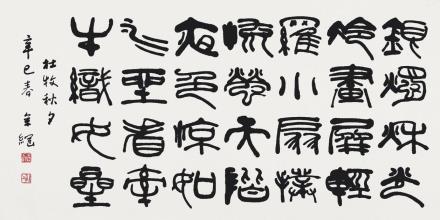 銀燭秋光
冷畫屏輕
羅小扇撲
流螢天階
夜色涼如
水坐看牽
牛織女星
杜牧秋夕
辛巳春